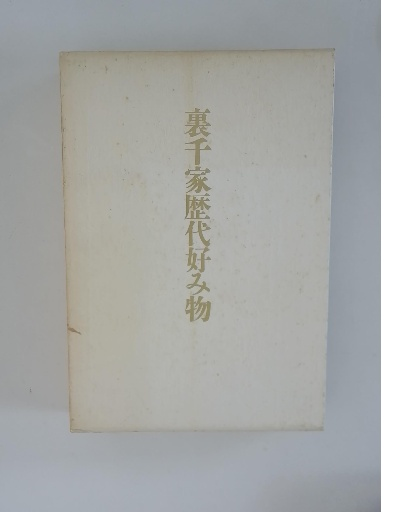 裏千家歴代好み物